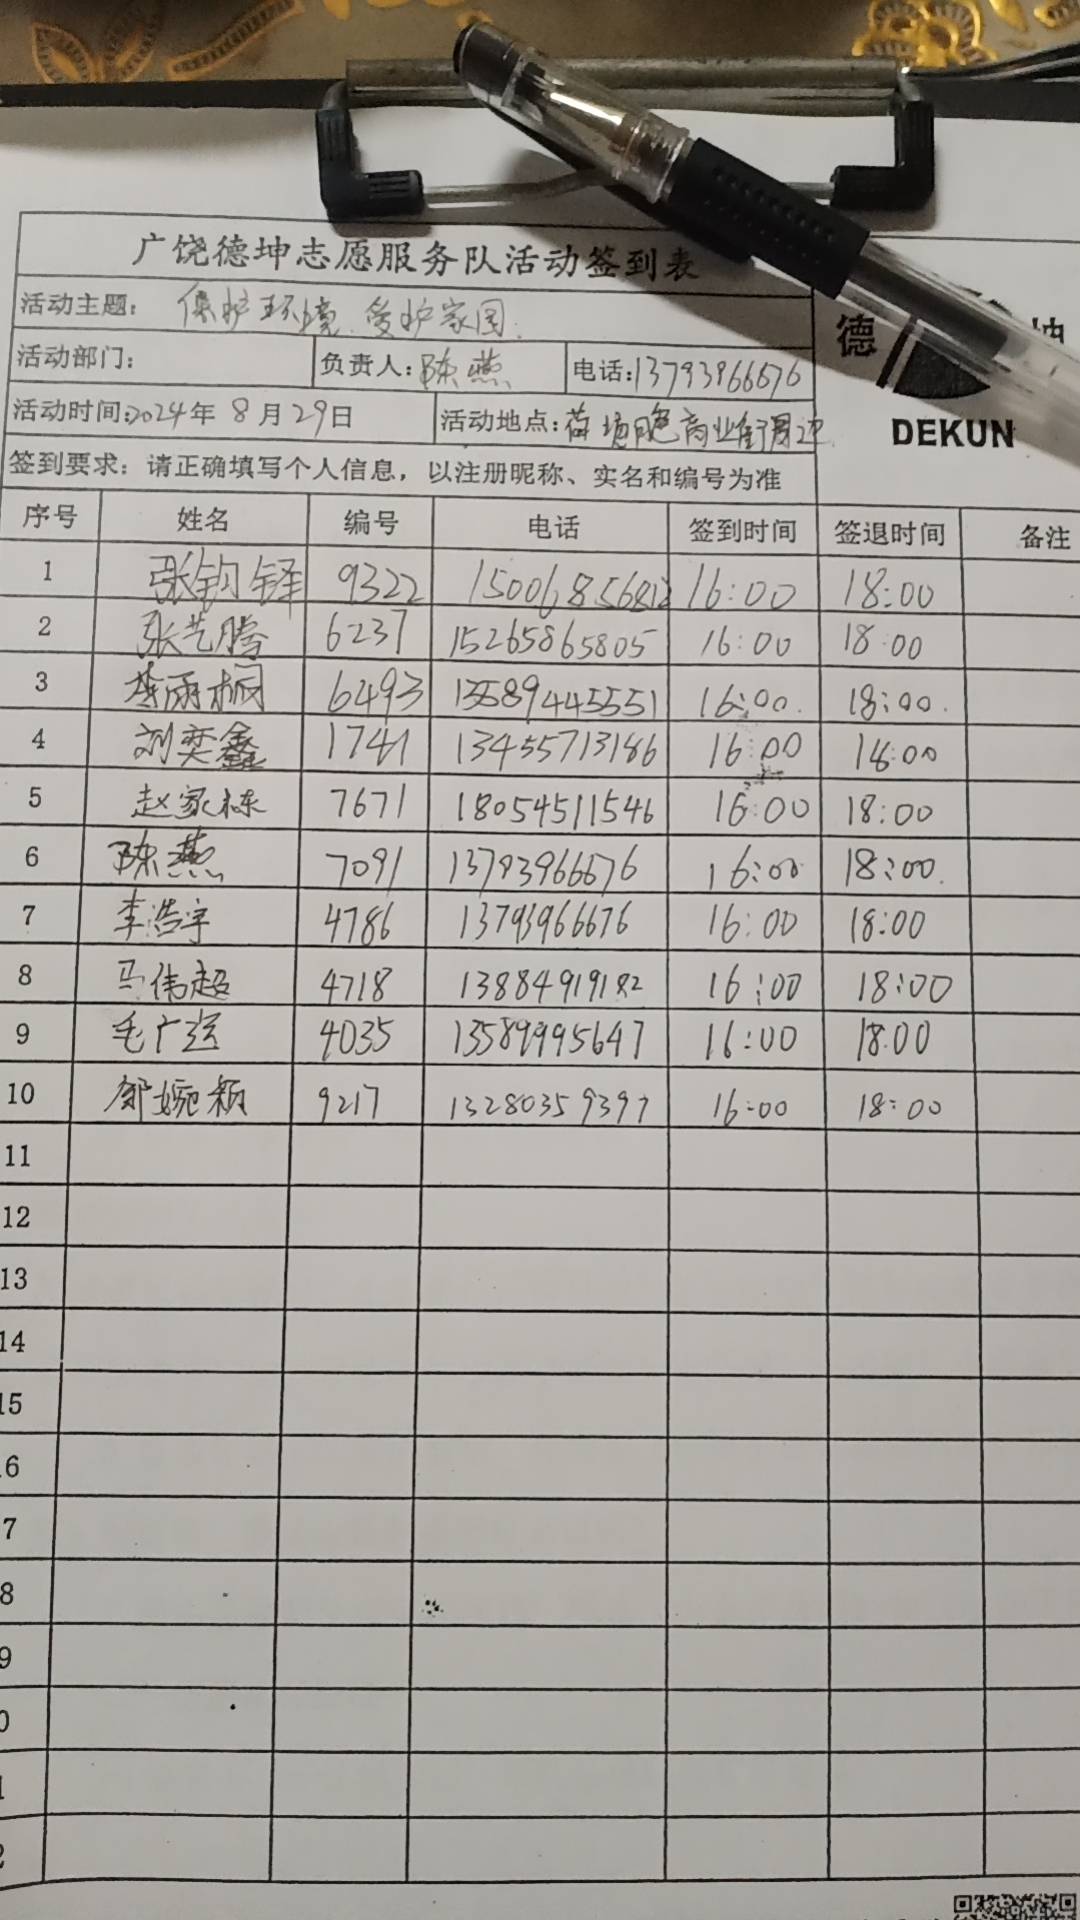 广饶德坤志愿服务队活动签到表
活动主题: 保护环境.爱护家园.
德 坤
DEKUN
活动部门: 负责人: 陈燕 电话:13793966676
活动时间:2024年 8月29日 活动地点: 商业街周边
签到要求: 请正确填写个人信息, 以注册昵称、实名和编号为准
序号 姓名 编号 电话 签到时间 签退时间 备注
1 张钧铎 9322 15006856812 16:00 18:00
2 张艺腾 6237 15265865805 16:00 18:00
3 雨桐 6493 13589445551 16:00. 18:00.
4 刘奕鑫 1741 13455713186 16:00 18:00
5 赵家栋 7671 18054511546 16:00 18:00
6 陈燕 7091 13793966676 16:00 18:00.
7 李浩宇 4786 13793966676 16:00 18:00
8 马伟超 4718 13884919182 16:00 18:00
9 毛广运 4035 13589995647 16:00 18:00
10 邹婉颖 9217 13280359397 16:00 18:00
11
12
13
14
15
6
7
8
9
0
1
2